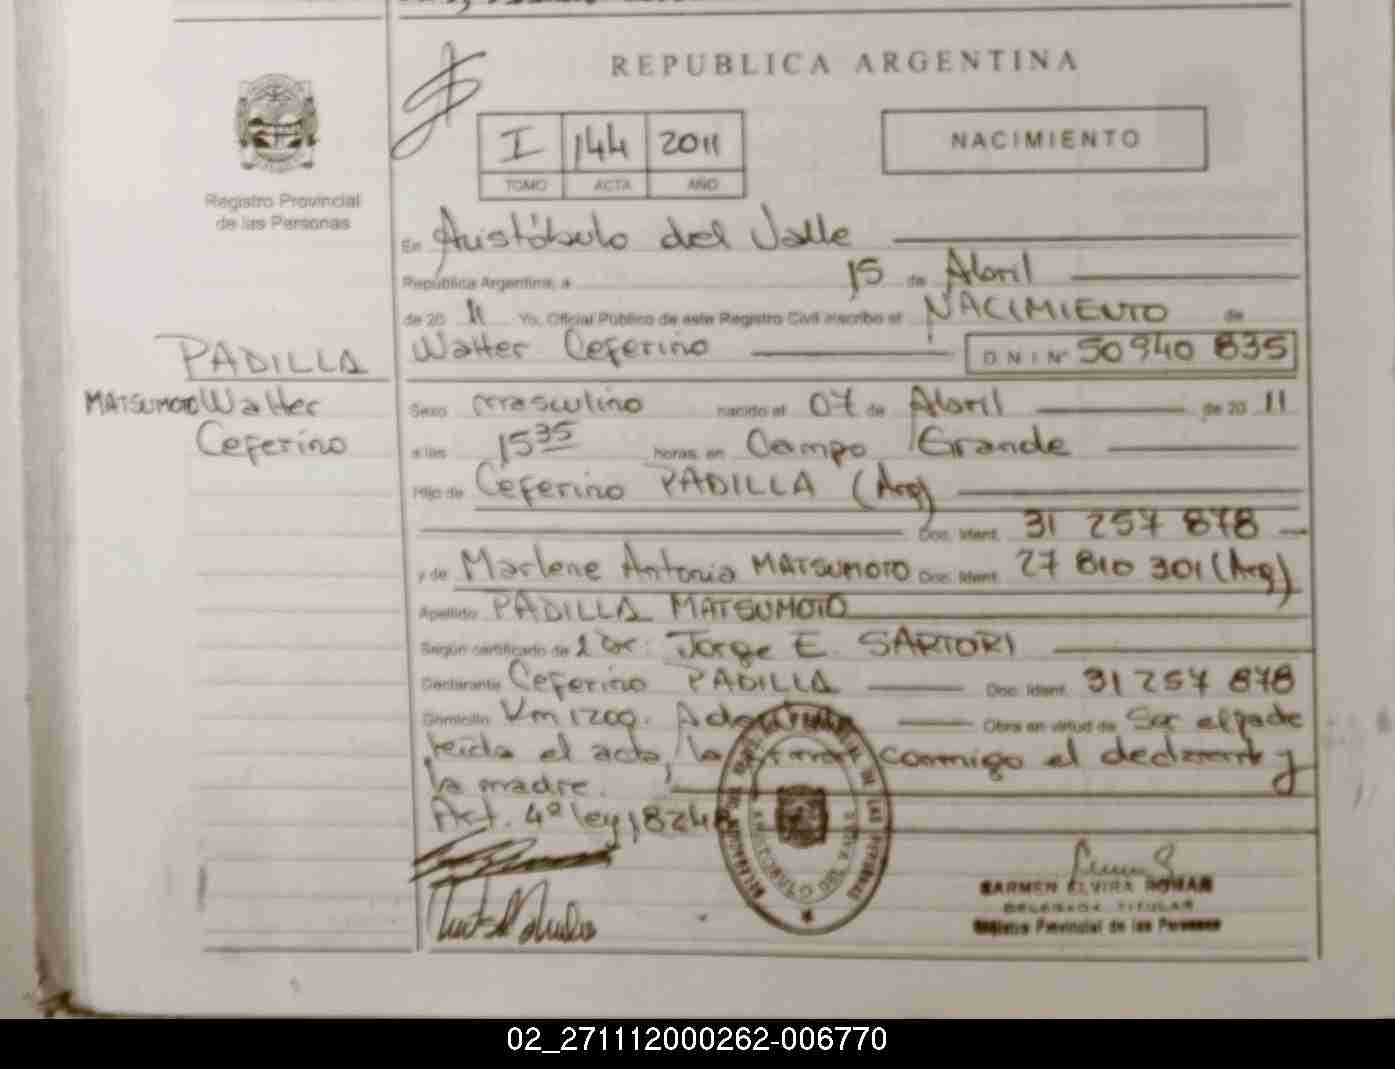 REPUBLICA ARGENTINA
I 144 2011
TOMO ACTA AÑO
NACIMIENTO
Registro Provincial
de las Personas
En Aristóbulo del Valle
República Argentina, a 15 de Abril
de 20 11 Yo, Oficial Público de este Registro Civil inscribo el NACIMIENTO de
Walter Ceferino D N I Nº 50 940 835
PADILLA
MATSUMOTO Walter
Ceferino
Sexo masculino nacido el 07 de Abril de 20 11
a las 15 35 horas, en Campo Grande
Hijo de Ceferino PADILLA (Arg)
Doc. Ident. 31 257 878
y de Marlene Antonia MATSUMOTO Doc. Ident. 27 810 301 (Arg)
Apellido PADILLA MATSUMOTO
Según certificado de Dr. Jorge E. SARTORI
Declarante Ceferino PADILLA Doc. Ident. 31 257 878
Domicilio Km 1209. Obra en virtud de Ser el padre
leida el acta, la conmigo el declarante y
la madre.
Art. 4º ley 18248
CARMEN ELVIRA ROMAN
DELEGADA TITULAR
Registro Provincial de las Personas
02_271112000262-006770